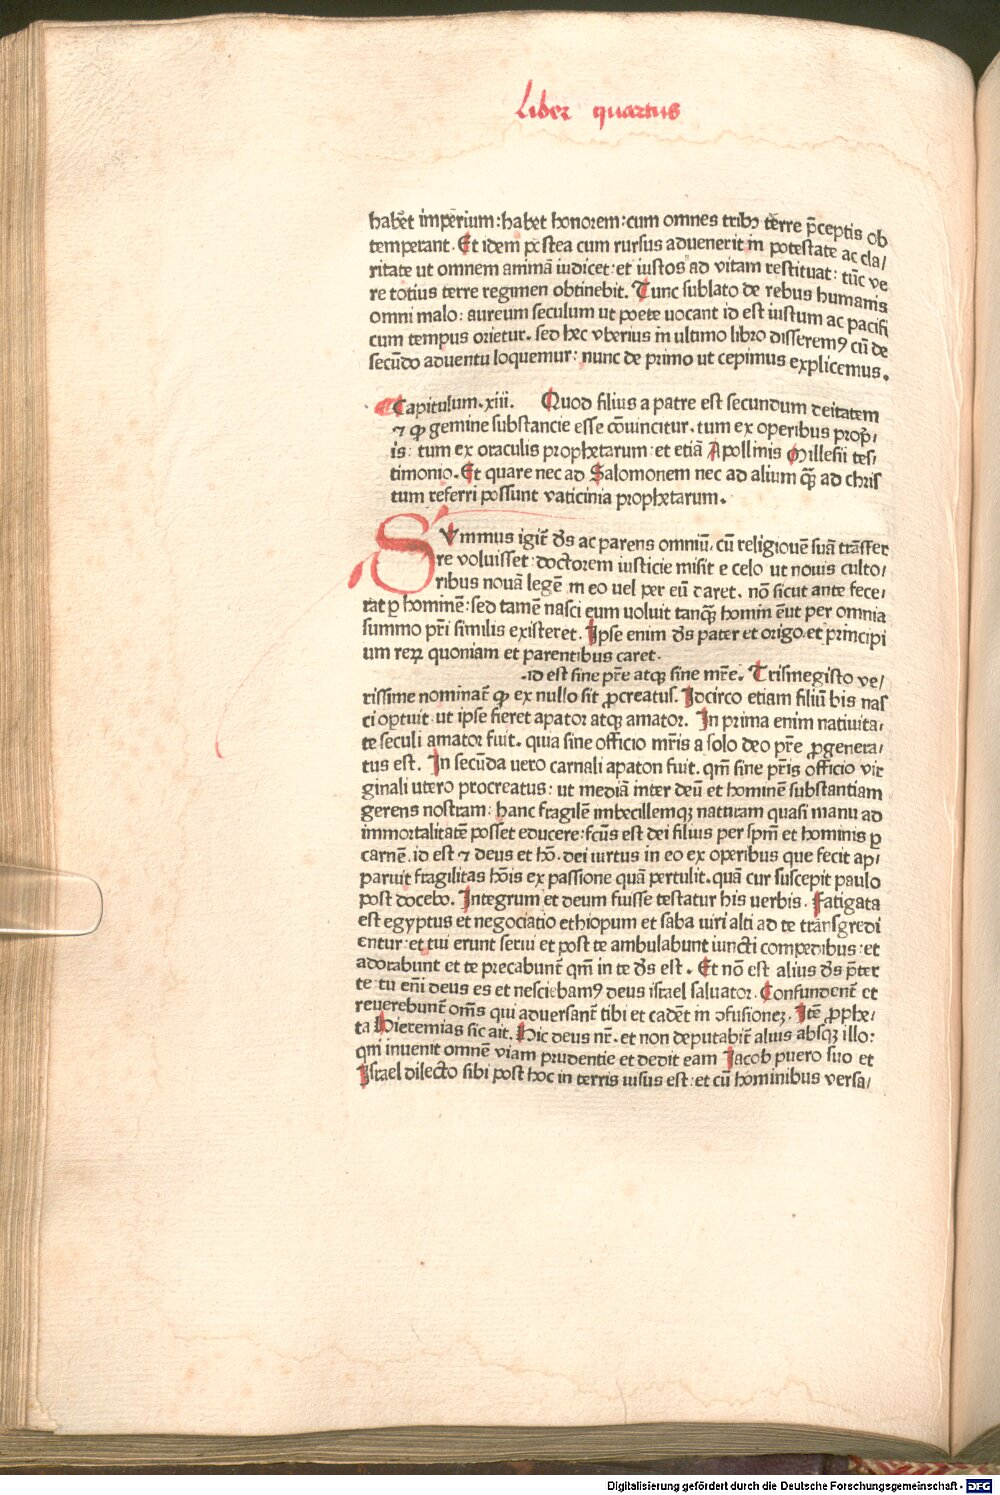 Liber quartus
habet impeerium: habet honorem: cum omnes tribꝰ terre p̄ceptis ob
temperant. Et idem postea cum rursus aduenerit in potestate ac cla/
ritate ut omnem animā iudicet: et iustos ad vitam restituat: tūc ve
re totius terre regimen obtinebit. Tunc sublato de rebus humanis
omni malo: aureum seculum ut poete uocant id est iustum ac pacifi
cum tempus orietur. sed hec vberius in ultimo libro disseremꝰ cū de
secūdo aduentu loquemur: nunc de primo ut cepimus explicemus.
Capitulum. xiii. Quod filius a patre est secundum deitatem
⁊ ꝙ gemine substancie esse cōuincitur. tum ex operibus prop̄/
is: tum ex oraculis prophetarum: et etiā Apollinis Millesii tes/
timonio. Et quare nec ad Salomonem nec ad alium q̄ꝫ ad chris
tum referri possunt vaticinia prophetarum.
SVmmus igit̄ d̄s ac parens omniū. cū religiouē suā trāsfer
re voluisset: doctorem iusticie misit e celo ut nouis culto/
ribus nouā legē in eo uel per eū daret. nō sicut ante fece/
rat ꝑ hominē: sed tamē nasci eum uoluit tanq̄ꝫ homin ēut per omnia
summo pr̄i similis existeret. Ipse enim d̄s pater et origo et principi
um reꝝ quoniam et parentibus caret.
.id est sine pr̄e atqꝫ sine mr̄e. Trismegisto ve/
rissime nominat̄ ꝙ ex nullo sit ꝓcreatus. Idcirco etiam filiū bis nas
ci optuit ut ipse fieret apator atqꝫ amator. In prima enim natiuita/
te seculi amator fuit. quia sine officio mr̄is a solo deo pr̄e ꝓgenera/
tus est. In secūda uero carnali apaton fuit. qm̄ sine pr̄is officio vir
ginali utero procreatus: ut mediā inter deū et hominē substantiam
gerens nostram: hanc fragilē imbecillemqꝫ naturam quasi manu ad
immortalitatē posset educere: fcūs est dei filius per spm̄ et hominis ꝑ
carnē. id est ⁊ deus et hō. dei uirtus in eo ex operibus que fecit ap/
paruit fragilitas hōis ex passione quā pertulit. quā cur suscepit paulo
post docebo. Integrum et deum fuisse testatur his uerbis. Fatigata
est egyptus et negociatio ethiopum et saba uiri alti ad te trānsgredi
entur: et tui erunt serui et post te ambulabunt iuncti compedibus: et
adorabunt et te precabunt̄ qm̄ in te d̄s est. Et nō est alius d̄s p̄ter
te: tu en̄i deus es et nesciebamꝰ deus israel saluator. Confundent̄ et
reuerebunt̄ om̄s qui aduersant̄ tibi et cadēt in ↄfusioneꝫ. Itē ꝓphe/
ta Hieremias sic ait. Hic deus nr̄. et non deputabit̄ alius absqꝫ illo:
qm̄ inuenit omnē viam prudentie et dedit eam Jacob puero suo et
Israel dilecto sibi post hoc in terris uisus est: et cū hominibus versa/
Digitalisierung gefördert durch die Deutsche Forschungsgemeinschaft - DFG